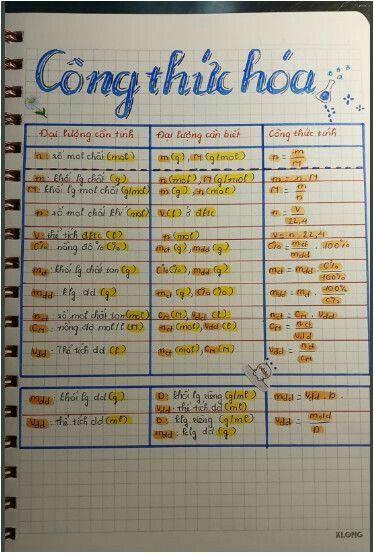 Công thức hóa
Đại lượng cần tính Đại lượng cần biết Công thức tính
n : số mol chất (mol) m (g), M (g/mol) n = m/M
m : khối lg chất (g) n (mol), M (g/mol) m = n . M
M : khối lg mol chất (g/mol) m (g), n (mol) M = m/n
n : số mol chất khí (mol) V (l) ở đktc n = V/22,4
V : thể tích đktc (l) n (mol) V = n . 22,4
C% : nồng độ % (%) mct (g), mdd (g) C% = mct/mdd . 100%
mct : khối lg chất tan (g) C% (%), mdd (g) mct = mdd . C%/100%
mdd : klg dd (g) mct (g), C% (%) mdd = mct . 100%/C%
n : số mol chất tan (mol) CM (M), Vdd (l) nct = CM . Vdd
CM : nồng độ mol/l (M) nct (mol), Vdd (l) CM = nct/Vdd
Vdd : Thể tích dd (l) nct (mol), CM (M) Vdd = nct/CM
mdd : khối lg dd (g) D : khối lg riêng (g/ml) mdd = Vdd . D
Vdd : thể tích dd (ml)
Vdd : thể tích dd (ml) D : klg riêng (g/ml) Vdd = mdd/D
mdd : klg dd (g)
KLONG